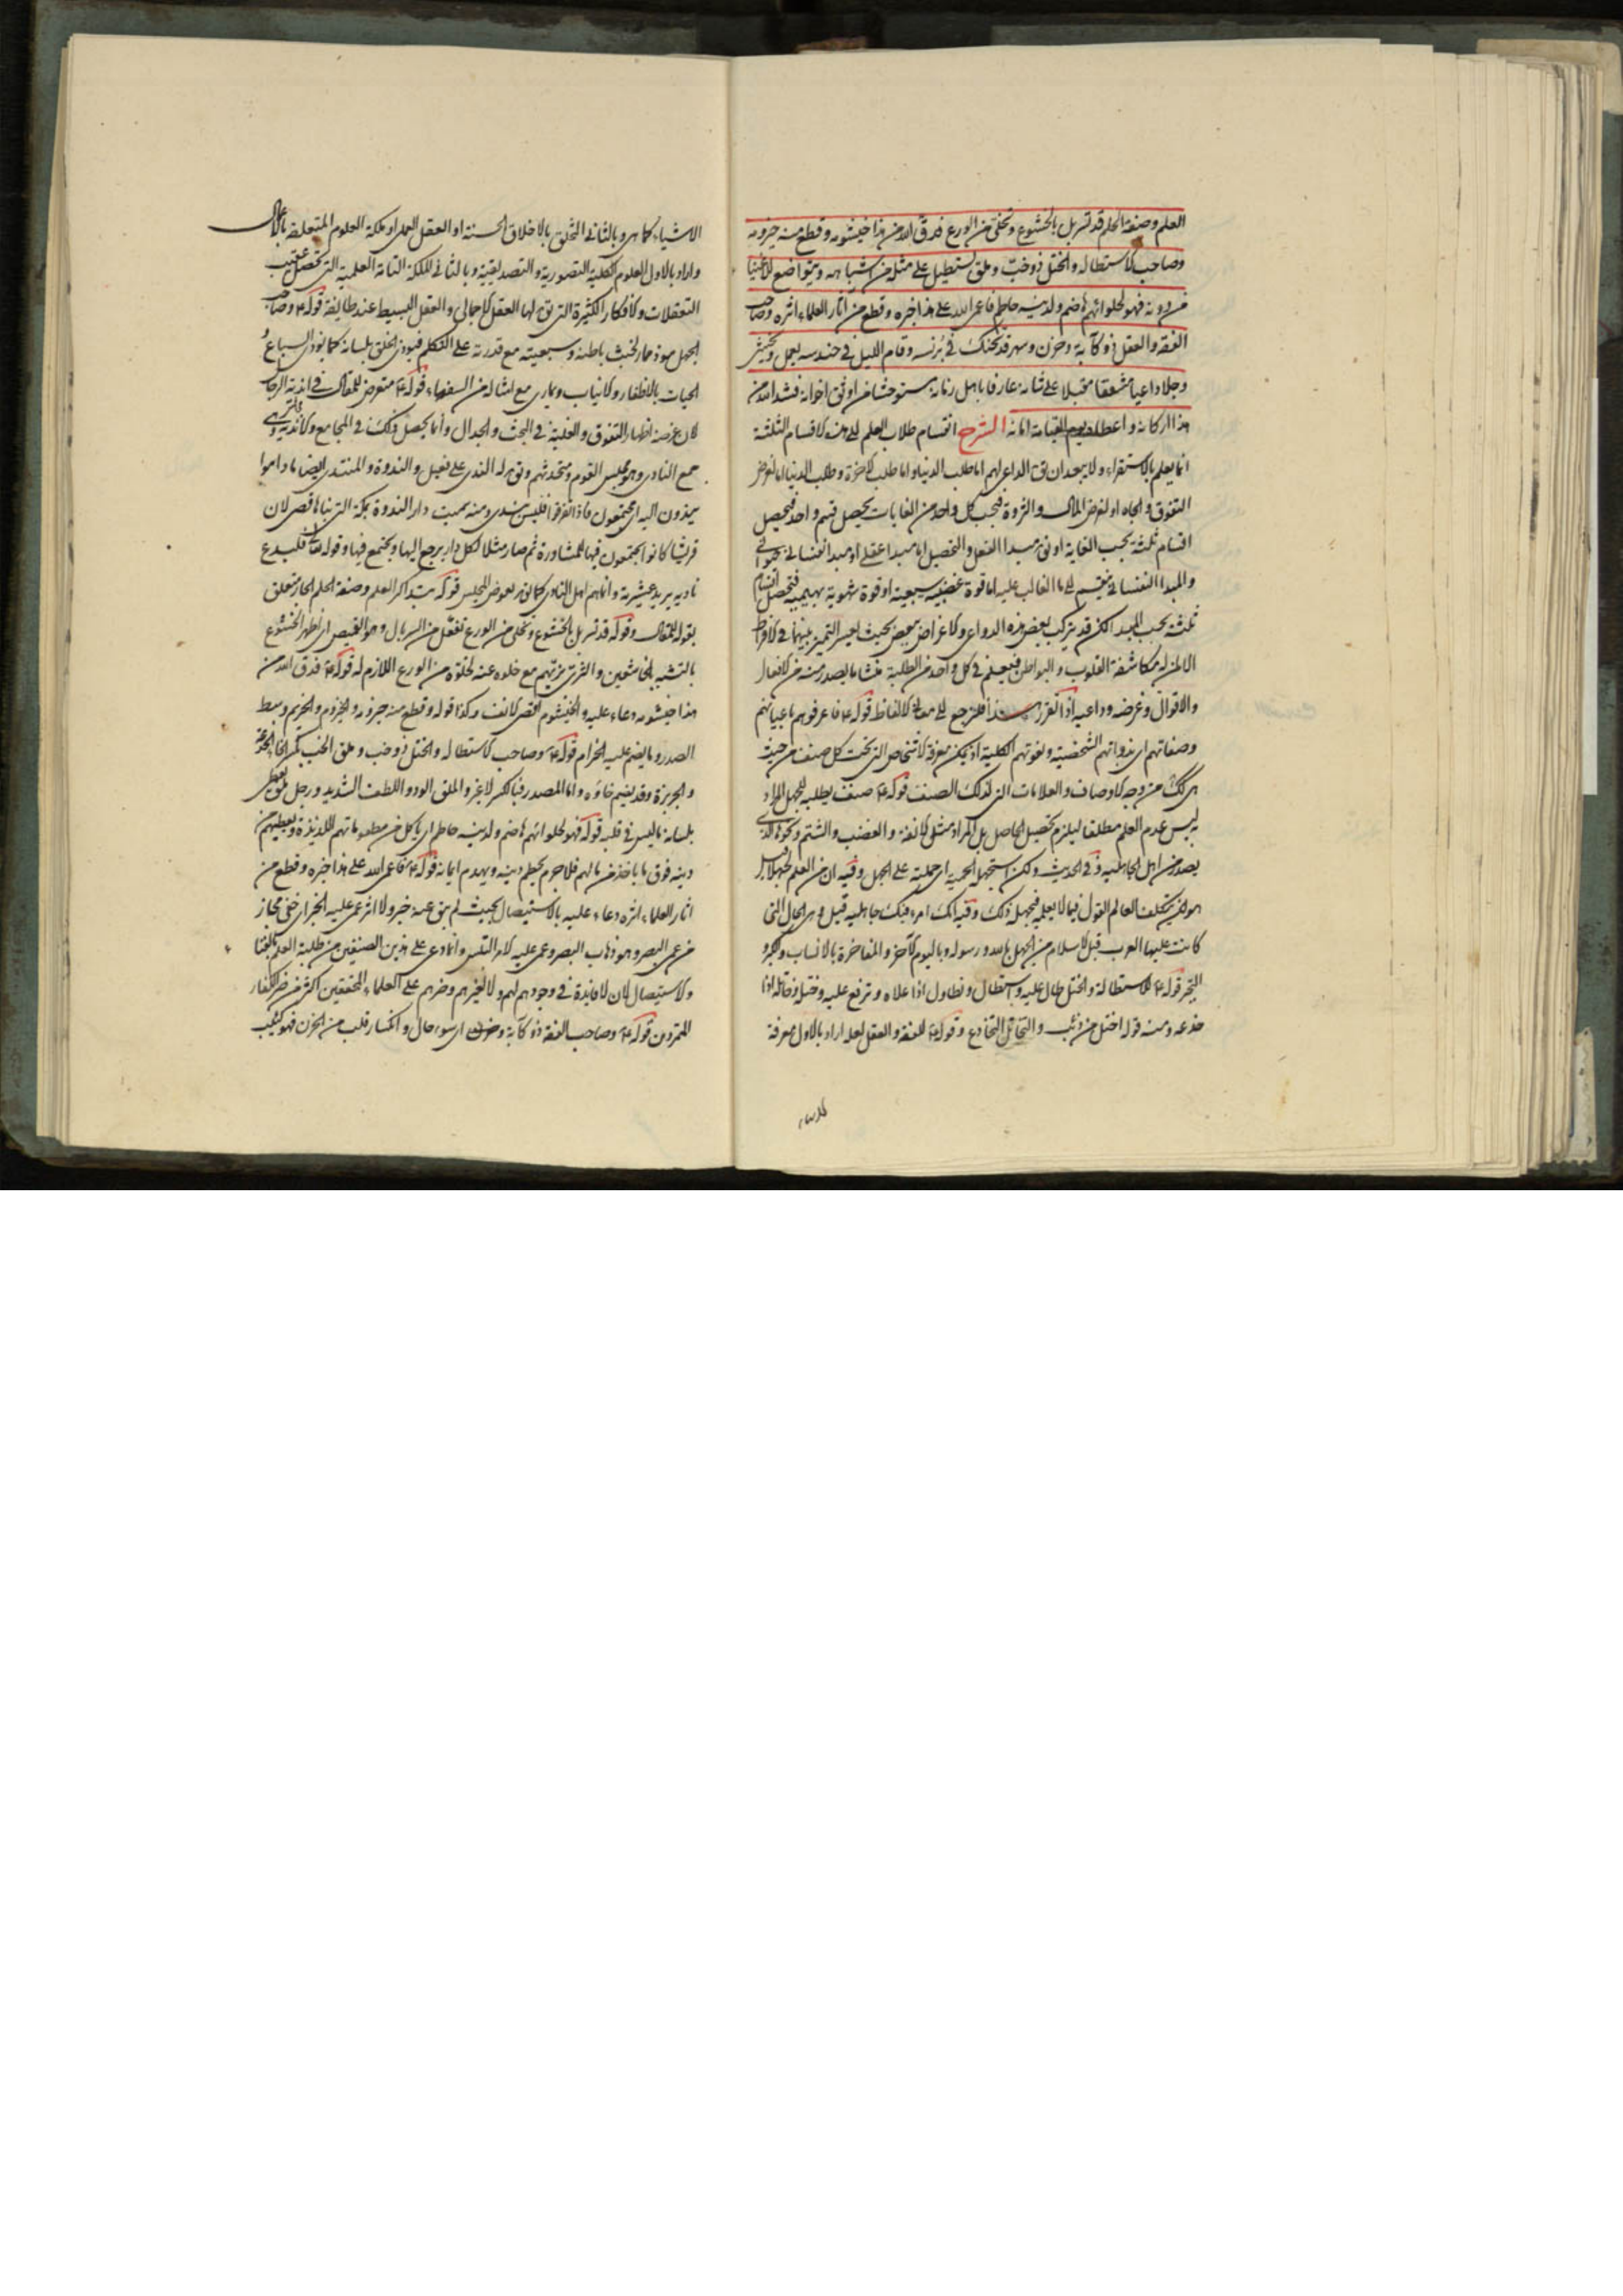 العلم وصفة الحلم قد تسربل بالخشوع وتخلى من الورع فدق الله من هذا خيشومه وقطع منه حيزومه
وصاحب الاستطالة والختل ذو خب وملق يستطيل على مثله من اشباهه ويتواضع للاغنياء
من دونه فهو لحلوائهم هاضم ولدينه حاطم فاعمى الله على هذا خبره وقطع من آثار العلماء اثره وصاحب
الفقه والعقل ذو كآبة وحزن وسهر قد تحنك في برنسه وقام الليل في حندسه يعمل ويخشى
وجلا داعيا مشفقا مقبلا على شانه عارفا باهل زمانه مستوحشا من اوثق اخوانه فشد الله من
هذا اركانه واعطاه يوم القيامة امانه الشرح انقسام طلاب العلم الى هذه الاقسام الثلثة
انما يعلم بالاستقراء ولا يبعد ان يق الداعي لهم اما طلب الدنيا واما طلب الاخرة وطلب الدنيا اما لغرض
التفوق والجاه او لغرض المال والثروة فبحسب كل واحد من الغايات يحصل قسم واحد فيحصل
اقسام ثلثة بحسب الغاية او نق مبدا الفعل والتحصيل اما مبدا عقلي او مبدا نفساني حيواني
والمبدا النفساني ينقسم الى ما الغالب عليه اما قوة غضبية سبعية او قوة شهوية بهيمية فتحصل اقسام
ثلثة بحسب المبدا لكن قد يتركب بعض هذه الدواعي والاغراض ببعض بحيث يعسر التميز بينهما في الافراط
الا لمن له مكاشفة القلوب والبواطن فيعلم في كل واحد من الطلبة منشا ما يصدر منه من الافعال
والاقوال وغرضه وداعيه اذا تقرر هذا فلنرجع الى معاني الالفاظ قوله ع فاعرفوهم باعيانهم
وصفاتهم اي بذواتهم الشخصية ونعوتهم الكلية اذ يمكن معرفة الاشخاص التي تحت كل صنف من حيث
هي كك من وجه الاوصاف والعلامات التي لذلك الصنف قوله ع صنف يطلبه للجهل المراد
به ليس عدم العلم مطلقا ليلزم تحصيل الحاصل بل المراد مثل الانفة والغضب والشتم ونحوها الذي
يصدر من اهل الجاهلية وفي الحديث ولكن استجهله الحمية اي حملته على الجهل وفيه ان من العلم لجهلا قيل
هو ان يتكلف العالم القول فيما لا يعلمه فيجهله ذلك وفيه انك امرء فيك جاهلية قيل وهي الحال التي
كانت عليها العرب قبل الاسلام من الجهل بالله ورسوله وباليوم الآخر والمفاخرة بالانساب والكبر و
التجبر قوله ع للاستطالة والختل طال عليه واستطال وتطاول اذا علاه وترفع عليه وختله وخاتله اذا
خدعه ومنه قوله اختل من ذئب والتخاتل التخادع وقوله ع للفقه والعقل لعله اراد بالاول معرفة
الاشياء كما هي وبالثاني التخلق بالاخلاق الحسنة او العقل العملي او ملكة العلوم المتعلقة بالاعمال
واراد بالاول العلوم الكلية التصورية والتصديقية وبالثاني الملكة التامة العلمية التي تحصل عقيب
التعقلات والافكار الكثيرة التي يق لها العقل الاجمالي والعقل البسيط عند طائفة قوله ع وصاحب
الجهل موذ ممار لخبث باطنه وسبعيته مع قدرته على التكلم فيوذي الخلق بلسانه كما يوذي السباع و
الحيات بالاظفار والانياب ويماري مع امثاله من السفهاء قوله ع متعرض للمقال في اندية الرجال
لان غرضه اظهار التفوق والغلبة في البحث والجدال وانما يحصل ذلك في المجامع والاندية وهي
جمع النادي وهو مجلس القوم ومتحدثهم ويق له الندى على فعيل والندوة والمنتدى ايضا ما داموا
يندون اليه اي يجتمعون فاذا تفرقوا فليس بندي ومنه سميت دار الندوة بمكة التي بناها قصي لان
قريشا كانوا يجتمعون فيها للمشاورة ثم صار مثلا لكل دار يرجع اليها ويجتمع فيها وقوله تعالى فليدع
ناديه يريد عشيرته وانما هم اهل النادي كما يق تعوض المجلس قوله بتذاكر العلم وصفة الحلم الجار متعلق
بقوله للمقال وقوله قد تسربل بالخشوع وتخلى من الورع تفعلل من السربال وهو القميص اي اظهر الخشوع
بالتشبه بالخاشعين والتزيي بزيهم مع خلوه عنه لخلوه من الورع اللازم له قوله ع فدق الله من
هذا خيشومه دعاء عليه والخيشوم اقصى الانف وكذا قوله وقطع منه حيزومه والحيزوم والحزيم وسط
الصدر وما يضم عليه الحزام قوله ع وصاحب الاستطالة والختل ذو خب وملق الخب بكسر الخاء الخدعة
والجربزة وقد يضم خاؤه واما المصدر فبالكسر لا غير والملق الود واللطف الشديد ورجل ملق يعطى
بلسانه ما ليس في قلبه قوله فهو لحلوائهم هاضم ولدينه حاطم اي ياكل من مطعوماتهم اللذيذة ويعطيهم من
دينه فوق ما ياخذ من مالهم فلا جرم يحطم دينه ويهدم ايمانه قوله ع فاعمى الله على هذا خبره وقطع من
اثار العلماء اثره دعاء عليه بالاستيصال بحيث لم يبق عنه خبر ولا اثر عمي عليه الخبر اي خفي مجاز
من عمى البصر وهو ذهاب البصر وعمى عليه الامر التبس وانما دعى على هذين الصنفين من طلبة العلم بالفنا
والاستيصال لان لا فايدة في وجودهم لهم ولا لغيرهم وضرهم على العلماء المحققين اكثر من ضر الكفار
المتمردون قوله ع وصاحب الفقه ذو كآبة وحزن اي سوء حال وانكسار قلب من الحزن فهو كئيب